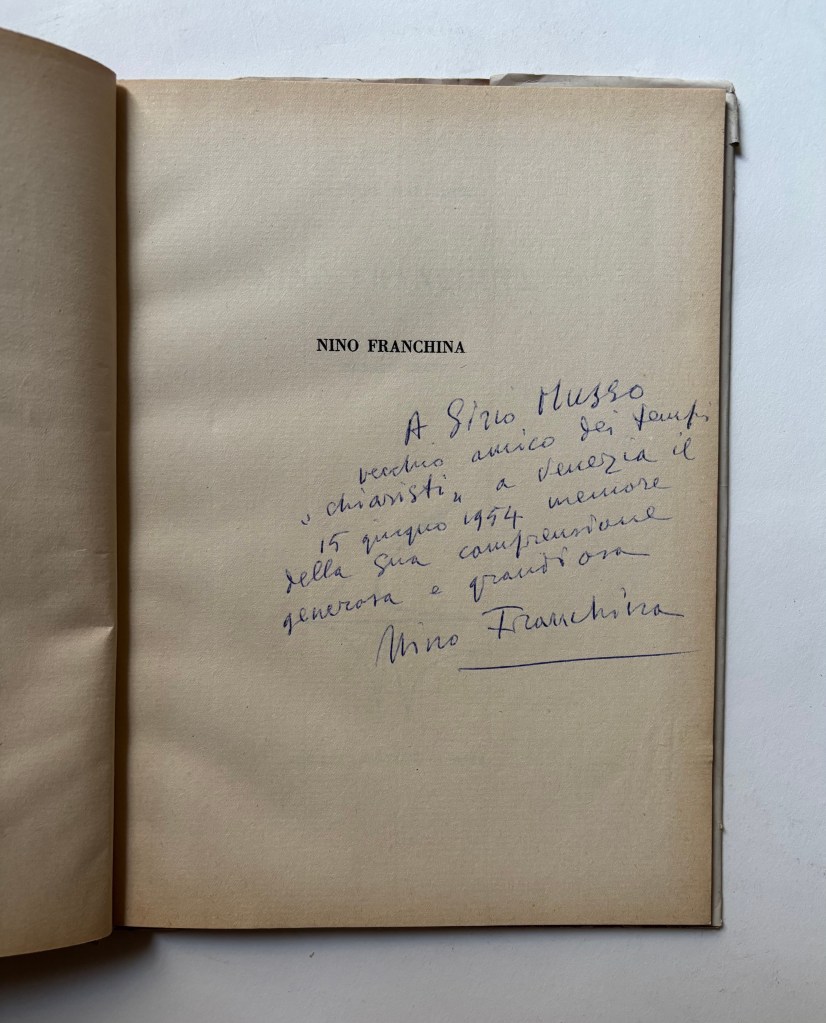 NINO FRANCHINA
A Sirio Musso
vecchio amico dei tempi
"chiaristi" a Venezia il
15 giugno 1954 memore
della sua comprensione
generosa e grandiosa
Nino Franchina